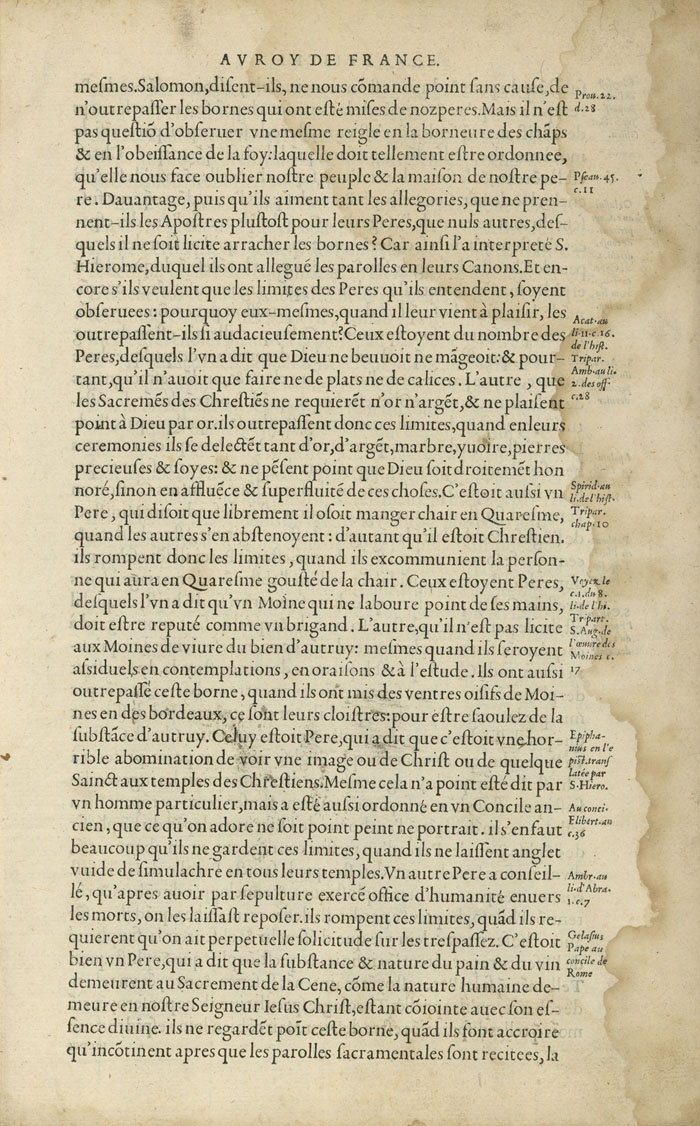 AV ROY DE FRANCE.
meſmes.Salomon,diſent-ils, ne nous cõmande point ſans cauſe,de
n'outrepaſſer les bornes qui ont eſté miſes de noz peres.Mais il n'eſt
pas queſtiõ d'obſeruer vne meſme reigle en la borneure des chãps
& en l'obeiſſance de la foy:laquelle doit tellement eſtre ordonnee,
qu'elle nous face oublier noſtre peuple & la maiſon de noſtre pe-
re. Dauantage, puis qu'ils aiment tant les allegories, que ne pren-
nent-ils les Apoſtres pluſtoſt pour leurs Peres,que nuls autres,deſ-
quels il ne ſoit licite arracher les bornes? Car ainſi l'a interpreté S.
Hierome,duquel ils ont allegué les parolles en leurs Canons.Et en-
core s'ils veulent que les limites des Peres qu'ils entendent, ſoyent
obſeruees: pourquoy eux-meſmes,quand il leur vient à plaiſir, les
outrepaſſent-ils ſi audacieuſement?Ceux eſtoyent du nombre des
Peres,deſquels l'vn a dit que Dieu ne beuuoit ne mãgeoit:& pour-
tant,qu'il n'auoit que faire ne de plats ne de calices. L'autre, que
les Sacremẽs des Chreſtiẽs ne requierẽt n'or n'argẽt,& ne plaiſent
point à Dieu par or.ils outrepaſſent donc ces limites,quand en leurs
ceremonies ils ſe delectẽt tant d'or,d'argẽt,marbre,yuoire,pierres
precieuſes & ſoyes: & ne pẽſent point que Dieu ſoit droitemẽt hon
noré,ſinon en affluẽce & ſuperfluité de ces choſes.C'eſtoit auſsi vn
Pere, qui diſoit que librement il oſoit manger chair en Quareſme,
quand les autres s'en abſtenoyent: d'autant qu'il eſtoit Chreſtien.
ils rompent donc les limites, quand ils excommunient la perſon-
ne qui aura en Quareſme gouſté de la chair. Ceux eſtoyent Peres,
deſquels l'vn a dit qu'vn Moine qui ne laboure point de ſes mains,
doit eſtre reputé comme vn brigand. L'autre,qu'il n'eſt pas licite
aux Moines de viure du bien d'autruy: meſmes quand ils ſeroyent
aſsiduels en contemplations, en oraiſons & à l'eſtude. Ils ont auſsi
outrepaſſé ceſte borne, quand ils ont mis des ventres oiſifs de Moi-
nes en des bordeaux, ce ſont leurs cloiſtres:pour eſtre ſaoulez de la
ſubſtãce d'autruy. Celuy eſtoit Pere,qui a dit que c'eſtoit vne hor-
rible abomination de voir vne image ou de Chriſt ou de quelque
Sainct aux temples des Chreſtiens.Meſme cela n'a point eſté dit par
vn homme particulier,mais a eſté auſsi ordonné en vn Concile an-
cien, que ce qu'on adore ne ſoit point peint ne portrait. il s'en faut
beaucoup qu'ils ne gardent ces limites, quand ils ne laiſſent anglet
vuide de ſimulachre en tous leurs temples.Vn autre Pere a conſeil-
lé, qu'apres auoir par ſepulture exercé office d'humanité enuers
les morts, on les laiſſaſt repoſer.ils rompent ces limites, quãd ils re-
quierent qu'on ait perpetuelle ſolicitude ſur les treſpaſſez. C'eſtoit
bien vn Pere,qui a dit que la ſubſtance & nature du pain & du vin
demeurent au Sacrement de la Cene, cõme la nature humaine de-
meure en noſtre Seigneur Ieſus Chriſt,eſtant cõiointe auec ſon eſ-
ſence diuine. ils ne regardẽt poĩt ceſte borne, quãd ils font accroire
qu'incõtinent apres que les parolles ſacramentales ſont recitees, la
Prou.22.
d.28
Pſeau.45.
c.11
Acat.au
li.11.c.16.
de l'hiſt.
Tripar.
Amb.au li.
2.des off.
c.28
Spirid.au
li.de l'hiſt.
Tripar.
chap.10
Voyez le
c.1.du 8.
li.de l'hi.
Tripart.
S.Aug.de
l'œuure des
Moines c.
17
Epipha-
nius en l'e
piſt.tranſ
latée par
S.Hiero.
Au conci.
Elibert.au
c.36
Ambr.au
li.d'Abra.
1.c.7
Gelaſius
Pape au
concile de
Rome